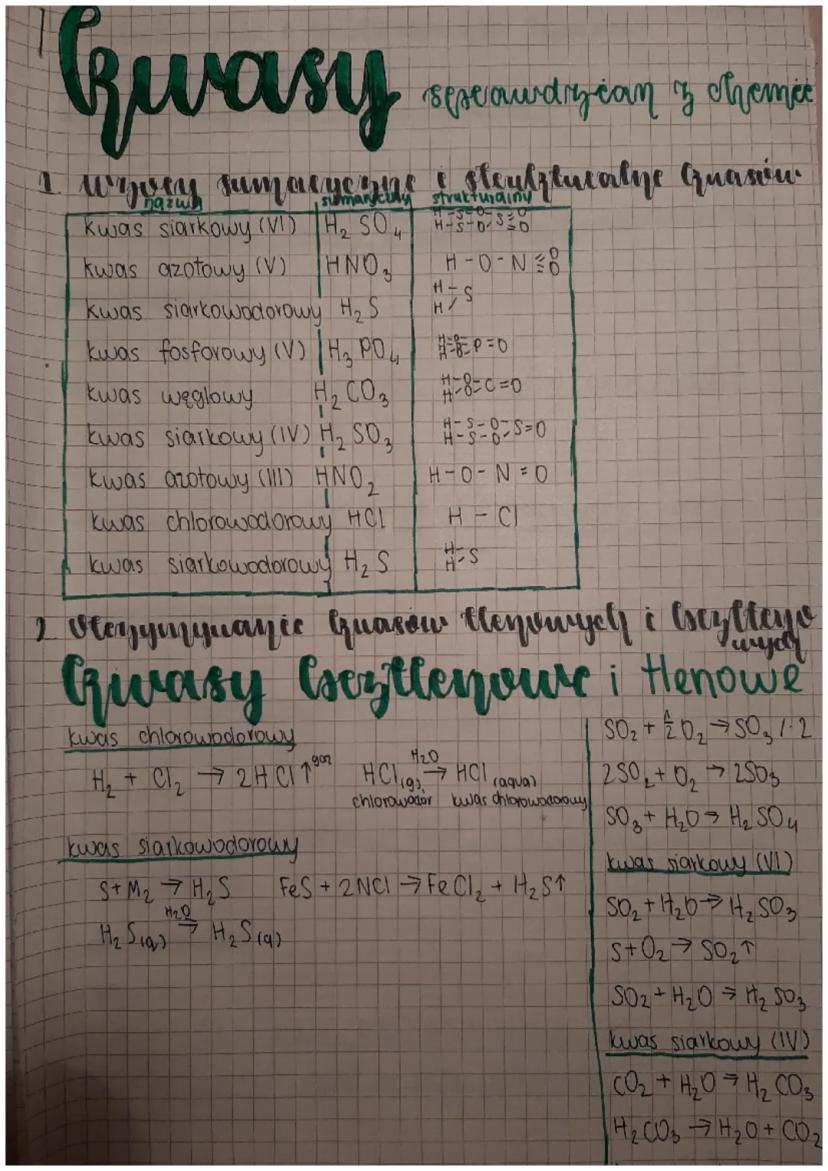 Kwasy sprawdzian z chemii
1 Wzory sumaryczne i strukturalne kwasów
nazwy sumaryczny strukturalny
kwas siarkowy (VI) H₂SO₄
kwas azotowy (V) HNO₃ H-O-N
kwas siarkowodorowy H₂S H-S H/
kwas fosforowy (V) H₃PO₄ P=O
kwas węglowy H₂CO₃ C=O
kwas siarkowy (IV) H₂SO₃ H-S-O-S=O H-S-O-
kwas azotowy (III) HNO₂ H-O-N=O
kwas chlorowodorowy HCl H-Cl
kwas siarkowodorowy H₂S H-S H-
2 Otrzymywanie kwasów tlenowych i beztleno
wych
Kwasy beztlenowe i tlenowe
kwas chlorowodorowy
H₂ + Cl₂ → 2HCl↑ gaz HCl(g) H₂O→ HCl (aqua)
chlorowodór kwas chlorowodorowy
kwas siarkowodorowy
S+M₂ → H₂S FeS + 2NCl → FeCl₂ + H₂S↑
H₂S(g) H₂O→ H₂S(q)
SO₂ + ½O₂ → SO₃ /·2
2SO₂ + O₂ → 2SO₃
SO₃ + H₂O → H₂SO₄
kwas siarkowy (VI)
SO₂ + H₂O → H₂SO₃
S+O₂ → SO₂↑
SO₂ + H₂O → H₂SO₃
kwas siarkowy (IV)
CO₂ + H₂O → H₂CO₃
H₂CO₃ → H₂O + CO₂